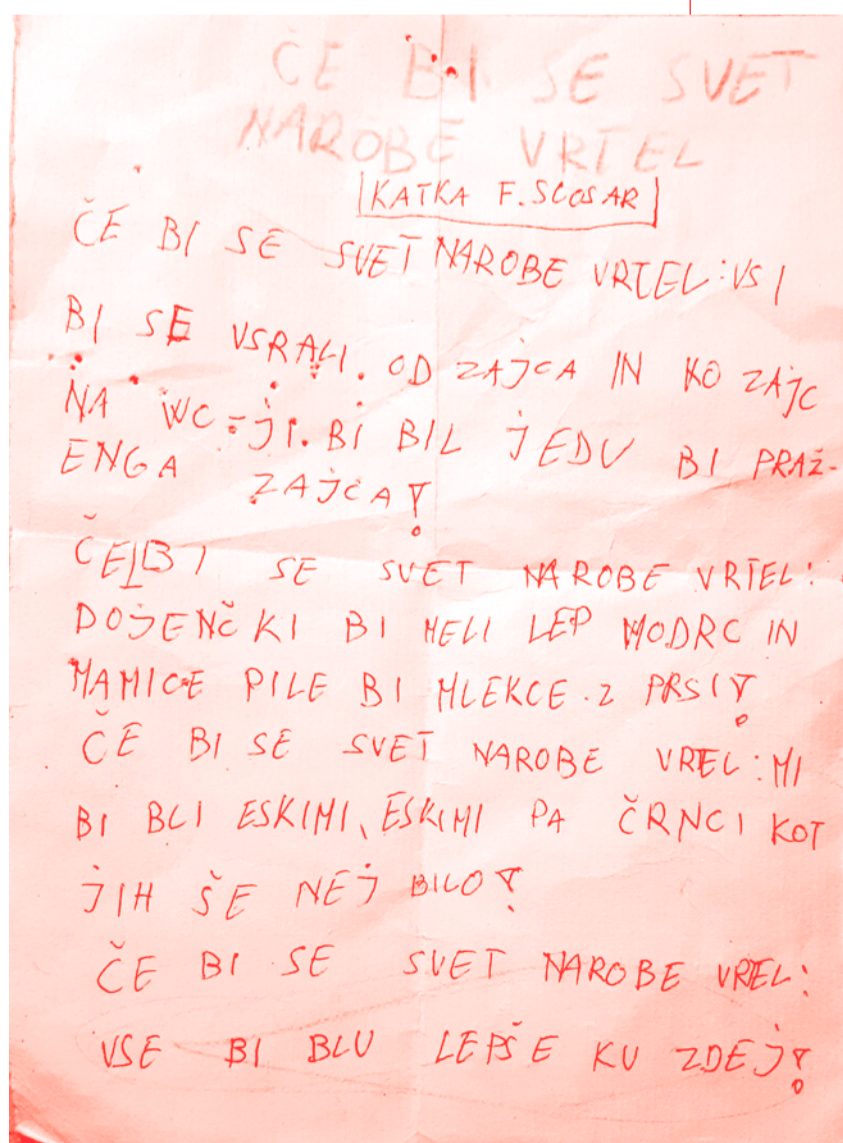 ČE BI SE SVET
NAROBE VRTEL
KATKA F. SLOSAR
ČE BI SE SVET NAROBE VRTEL: VSI
BI SE VSRALI. OD ZAJCA IN KO ZAJC
NA WC-JI. BI BIL JEDU BI PRAŽ-
ENGA ZAJCA!
ČE BI SE SVET NAROBE VRTEL:
DOJENČKI BI MELI LEP MODRC IN
MAMICE PILE BI MLEKCE Z PRSI!
ČE BI SE SVET NAROBE VRTEL: MI
BI BLI ESKIMI, ESKIMI PA ČRNCI KOT
JIH ŠE NEJ BILO!
ČE BI SE SVET NAROBE VRTEL:
VSE BI BLU LEPŠE KU ZDEJ!